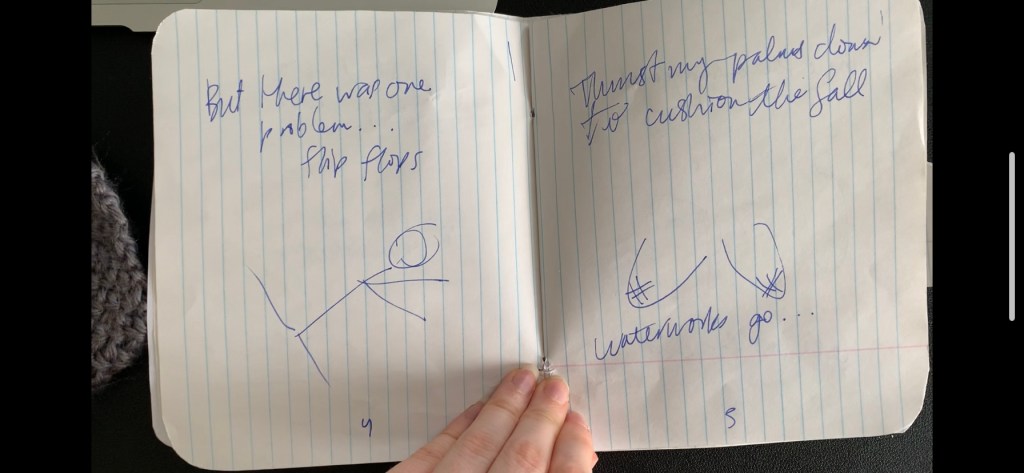 But there was one
problem...
flip flops
4
Thrust my palms down
to cushion the fall
waterworks go...
5